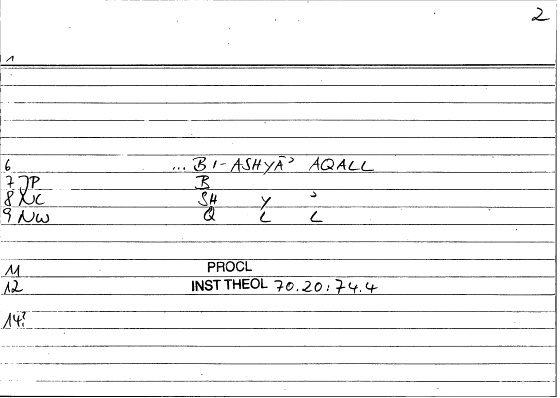 2
1
6 ... B I- ASHYĀ' AQALL
7 JP B
8 NC SH Y '
9 NW Q L L
11 PROCL
12 INST THEOL 70.20:74.4
14?